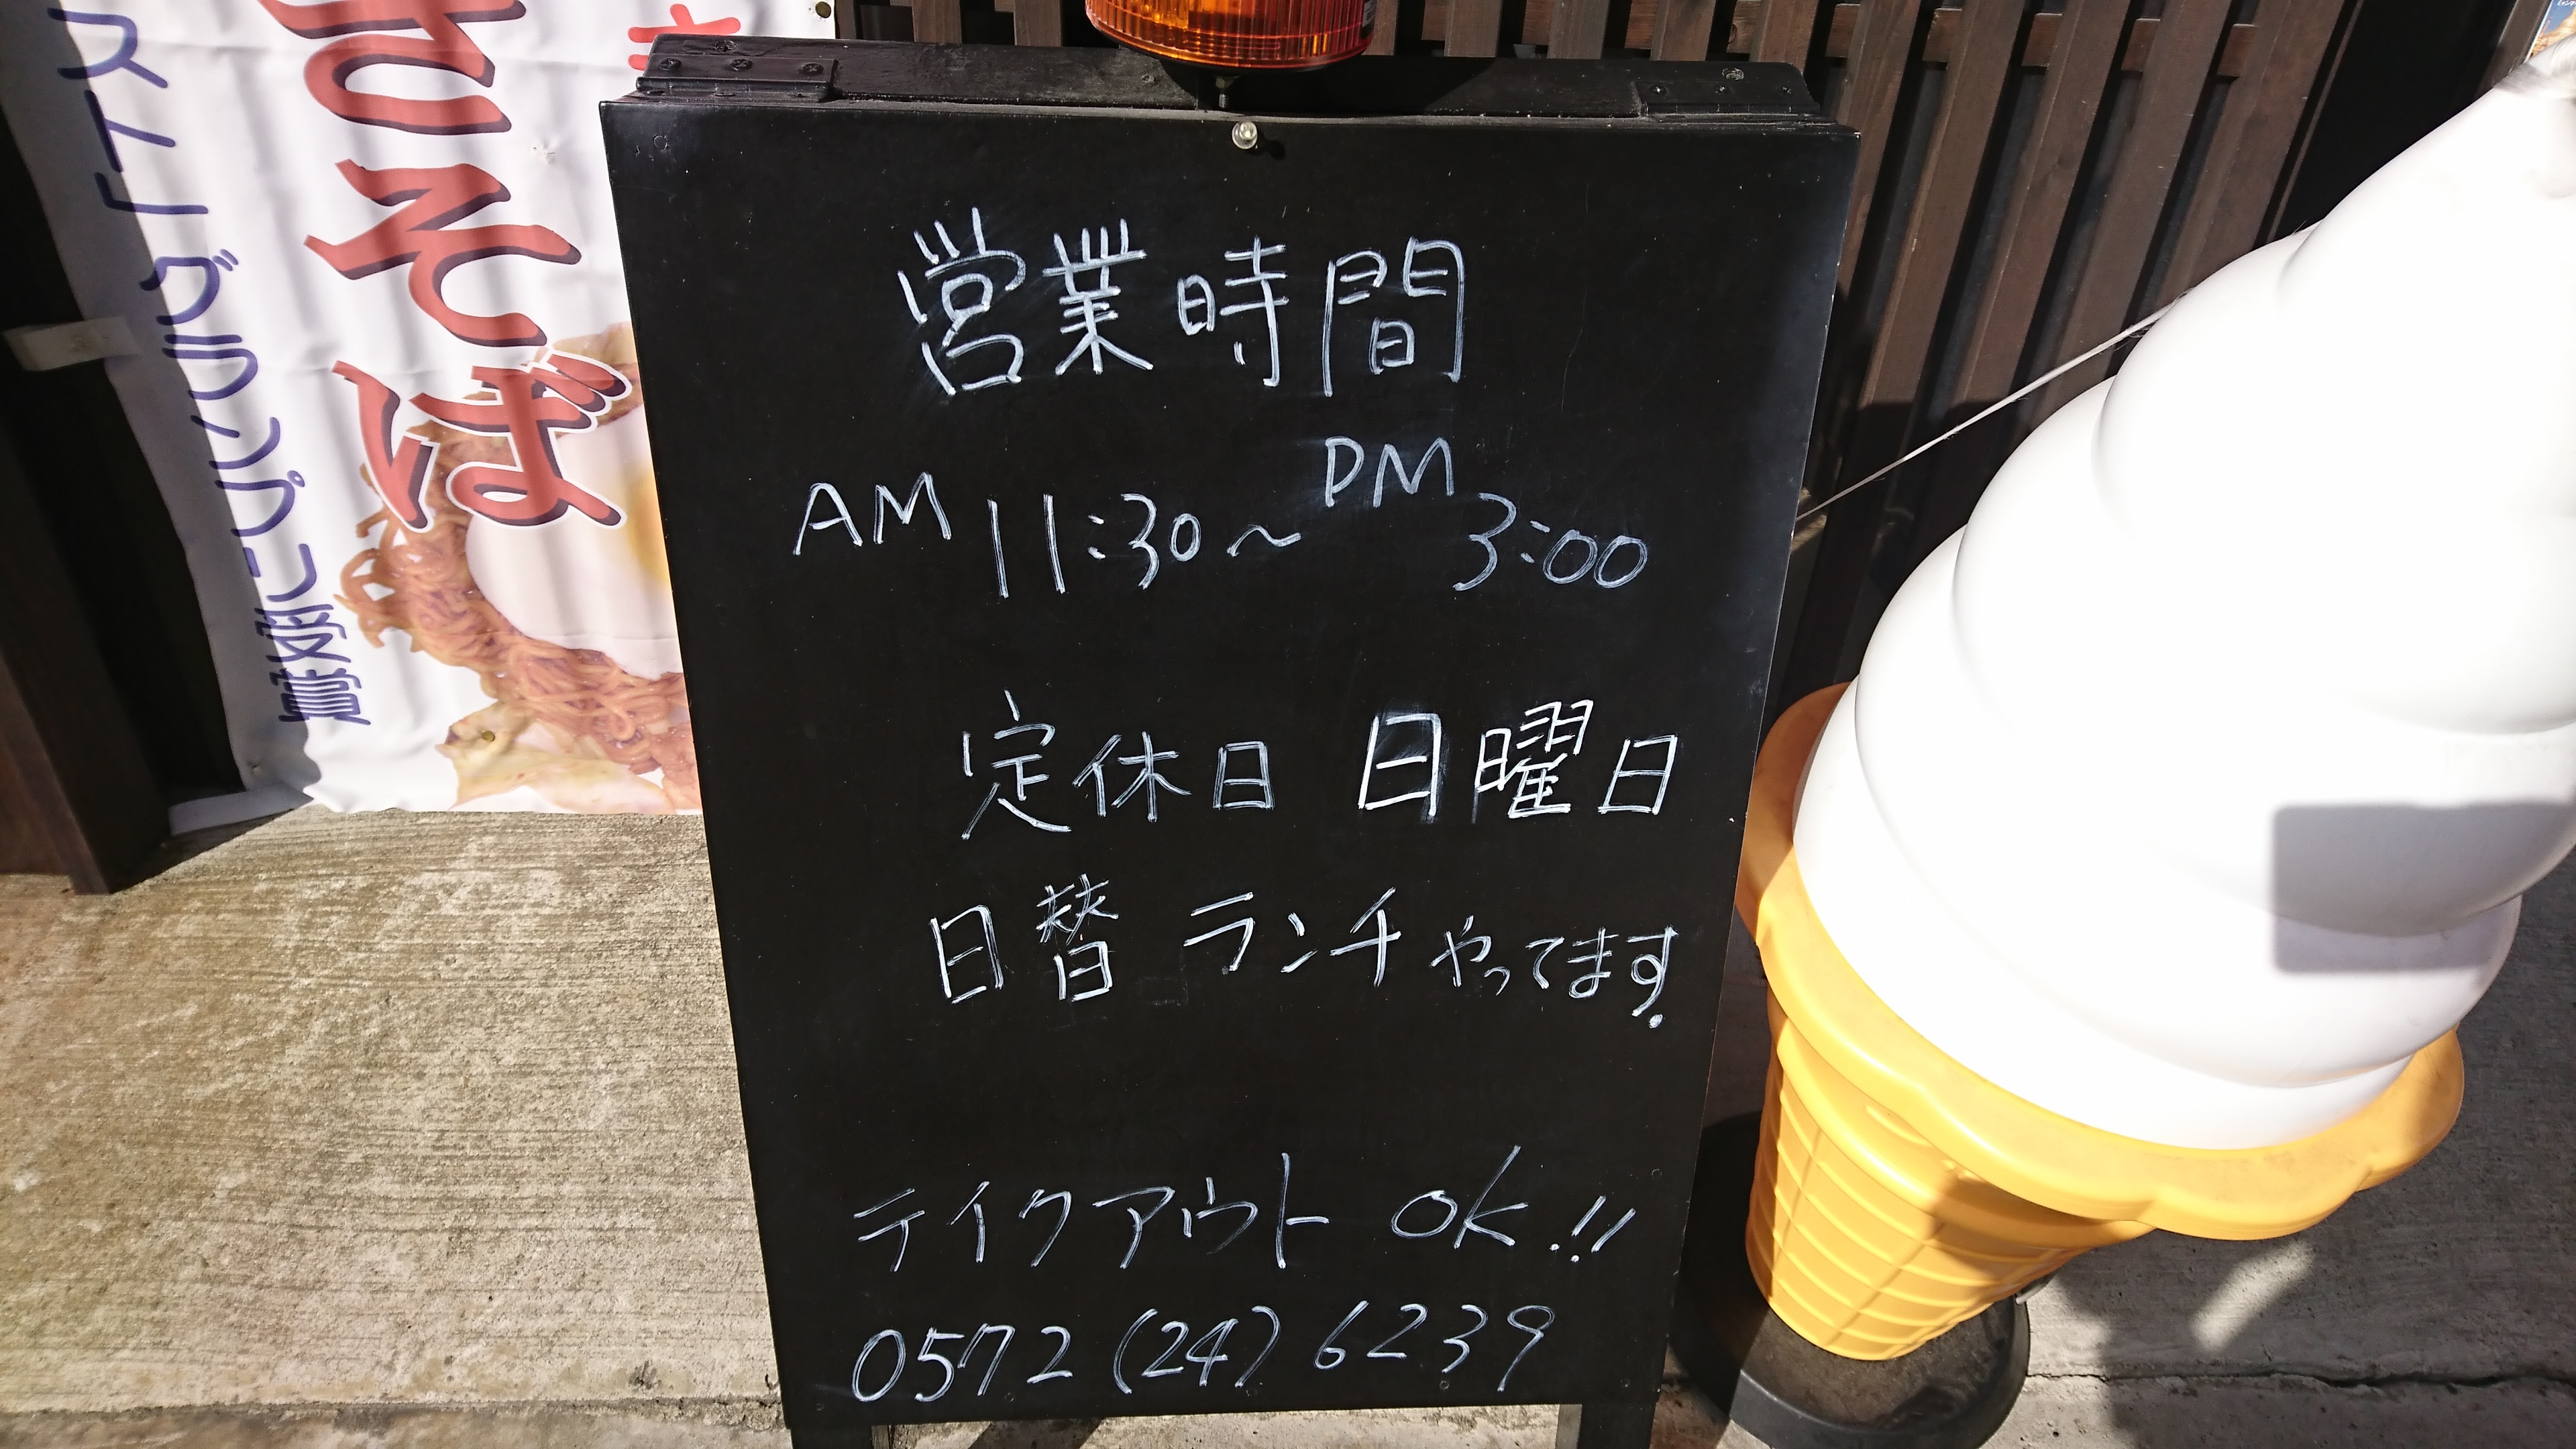 営業時間
AM 11:30~PM 3:00
定休日 日曜日
日替 ランチ やってます.
テイクアウト OK!!
0572 (24) 6239
きそば
グランプリ受賞